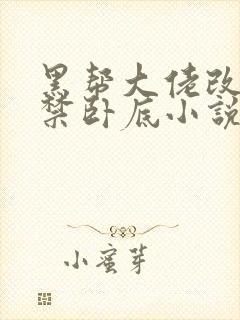 黑帮大佬改
禁卧底小說
小蜜芽